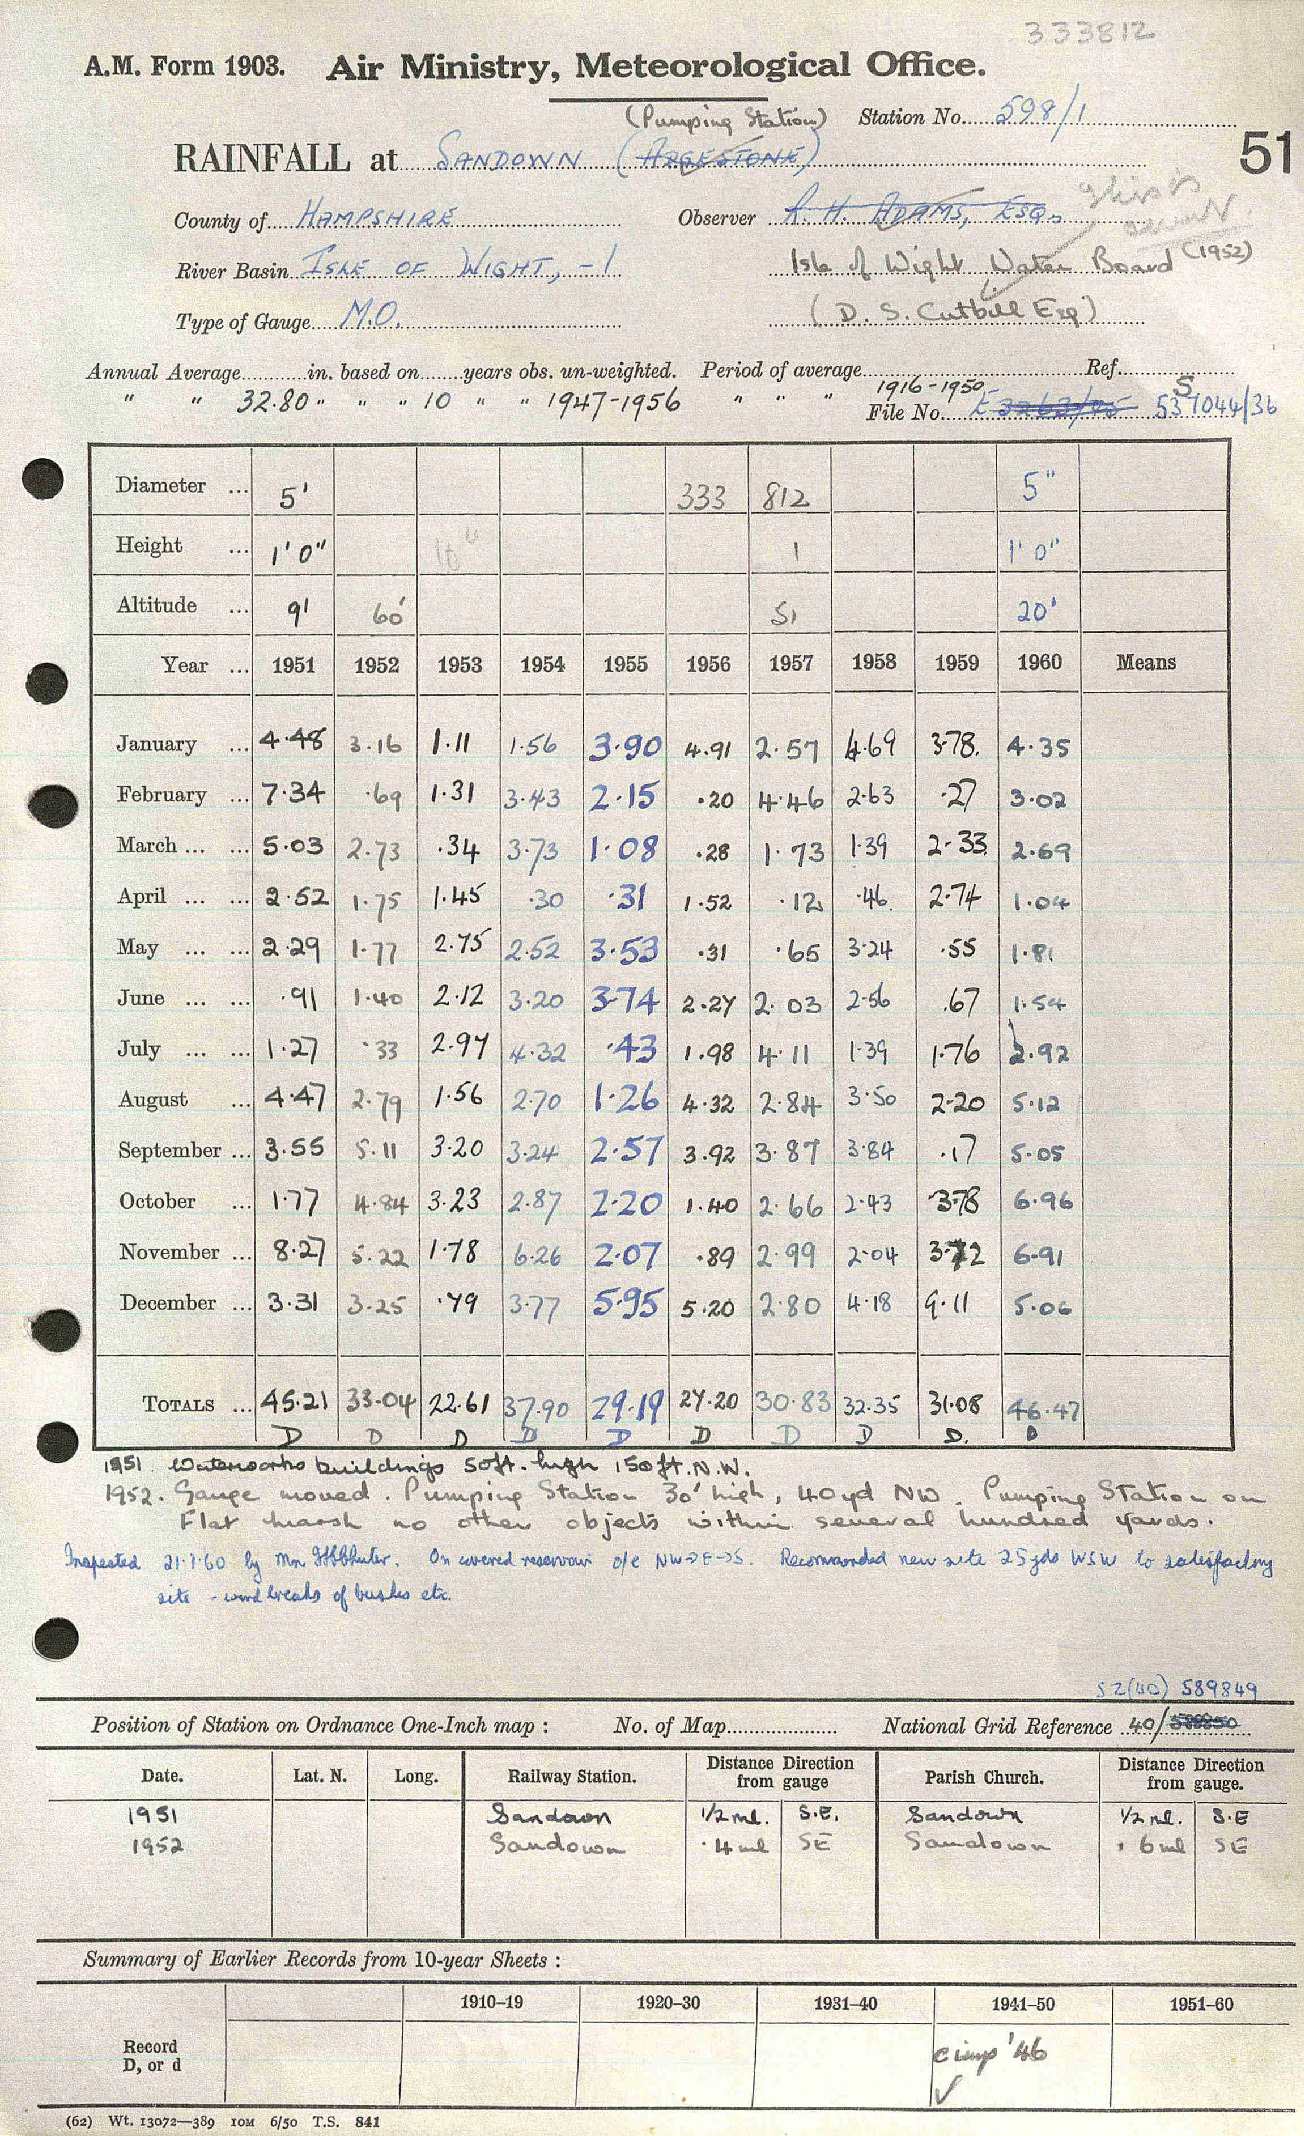 333812
A.M. Form 1903. Air Ministry, Meteorological Office.
(Pumping Station) Station No. 598/1
RAINFALL at SANDOWN (ARGESTONE) 51
County of HAMPSHIRE Observer R. H. ADAMS, ESQ.
River Basin ISLE OF WIGHT, -1. Isle of Wight Water Board (1952)
Type of Gauge M.O. (D. S. Cutbill Esq)
Annual Average in. based on years obs. un-weighted. Period of average Ref.
" " 32.80 " " " 10 " " 1947-1956 " " " 1916-1950 S
File No. 537044/36
Diameter ... 5' 333 812 5"
Height ... 1' 0" 1 1' 0"
Altitude ... 91 60' 51 20'
Year ... 1951 1952 1953 1954 1955 1956 1957 1958 1959 1960 Means
January ... 4.48 3.16 1.11 1.56 3.90 4.91 2.57 4.69 3.78. 4.35
February ... 7.34 .69 1.31 3.43 2.15 .20 4.46 2.63 .27 3.02
March ... ... 5.03 2.73 .34 3.73 1.08 .28 1.73 1.39 2.33 2.69
April ... ... 2.52 1.75 1.45 .30 .31 1.52 .12 .46 2.74 1.04
May ... ... 2.29 1.77 2.75 2.52 3.53 .31 .65 3.24 .55 1.81
June ... ... .91 1.40 2.12 3.20 3.74 2.27 2.03 2.56 .67 1.54
July ... ... 1.27 .33 2.97 4.32 .43 1.98 4.11 1.39 1.76 2.92
August ... 4.47 2.79 1.56 2.70 1.26 4.32 2.84 3.50 2.20 5.12
September ... 3.55 5.11 3.20 3.24 2.57 3.92 3.87 3.84 .17 5.05
October ... 1.77 4.84 3.23 2.87 2.20 1.40 2.66 2.43 3.78 6.96
November ... 8.27 5.22 1.78 6.26 2.07 .89 2.99 2.04 3.72 6.91
December ... 3.31 3.25 .79 3.77 5.95 5.20 2.80 4.18 9.11 5.06
TOTALS ... 45.21 33.04 22.61 37.90 29.19 27.20 30.83 32.35 31.08 46.47
D D D D D D D D D. D
1951. Waterworks buildings 50ft. high 150ft. N.W.
1952. Gauge moved. Pumping Station 30' high, 40yd NW. Pumping Station on
Flat marsh no other objects within several hundred yards.
Inspected 21.7.60 by Mr. On covered reservoir o/e NW→E→S. Recommended new site 25yds WSW to satisfactory
site - wind breaks of bushes etc.
SZ(40) 589849
Position of Station on Ordnance One-Inch map : No. of Map National Grid Reference 40/588850
Date. Lat. N. Long. Railway Station. Distance from gauge Direction Parish Church. Distance from gauge. Direction
1951 Sandown 1/2 ml. S.E. Sandown 1/2 ml. S.E
1952 Sandown .4 ml SE Sandown .6 ml SE
Summary of Earlier Records from 10-year Sheets :
1910–19 1920–30 1931–40 1941–50 1951–60
Record
D, or d
c imp '46
✓
(62) Wt. 13072—389 10M 6/50 T.S. 841